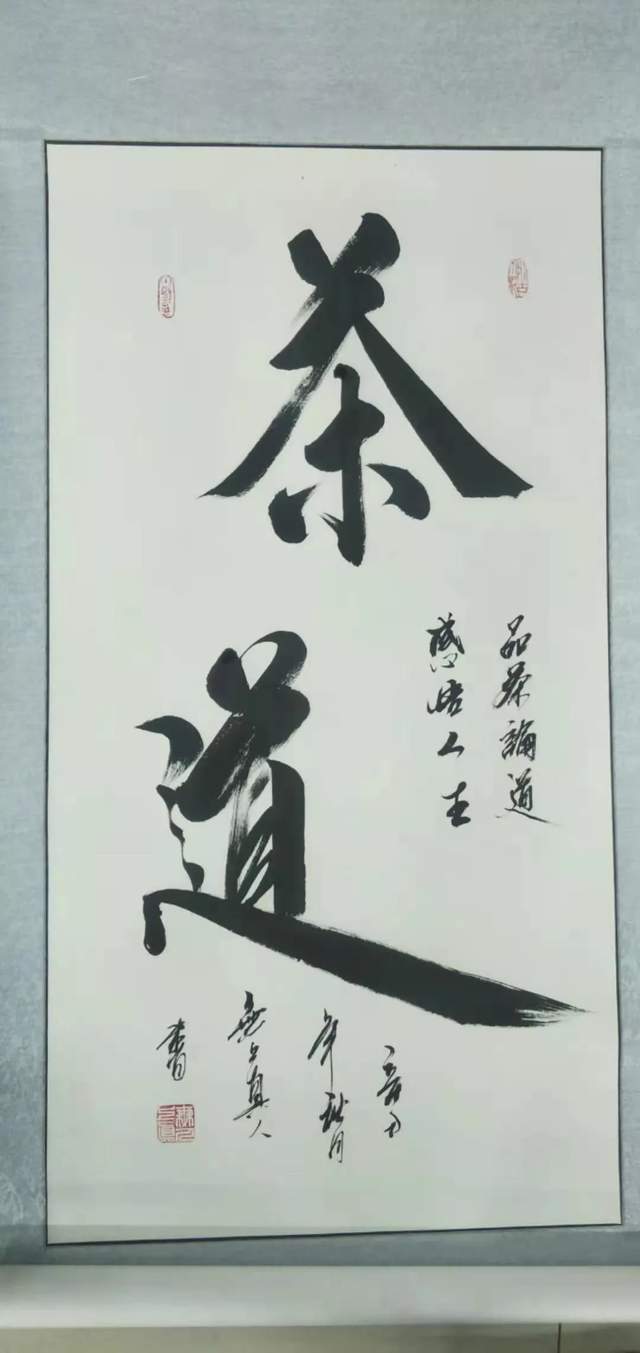 茶
道
品茶論道
感悟人生
年秋月
無上真人
書